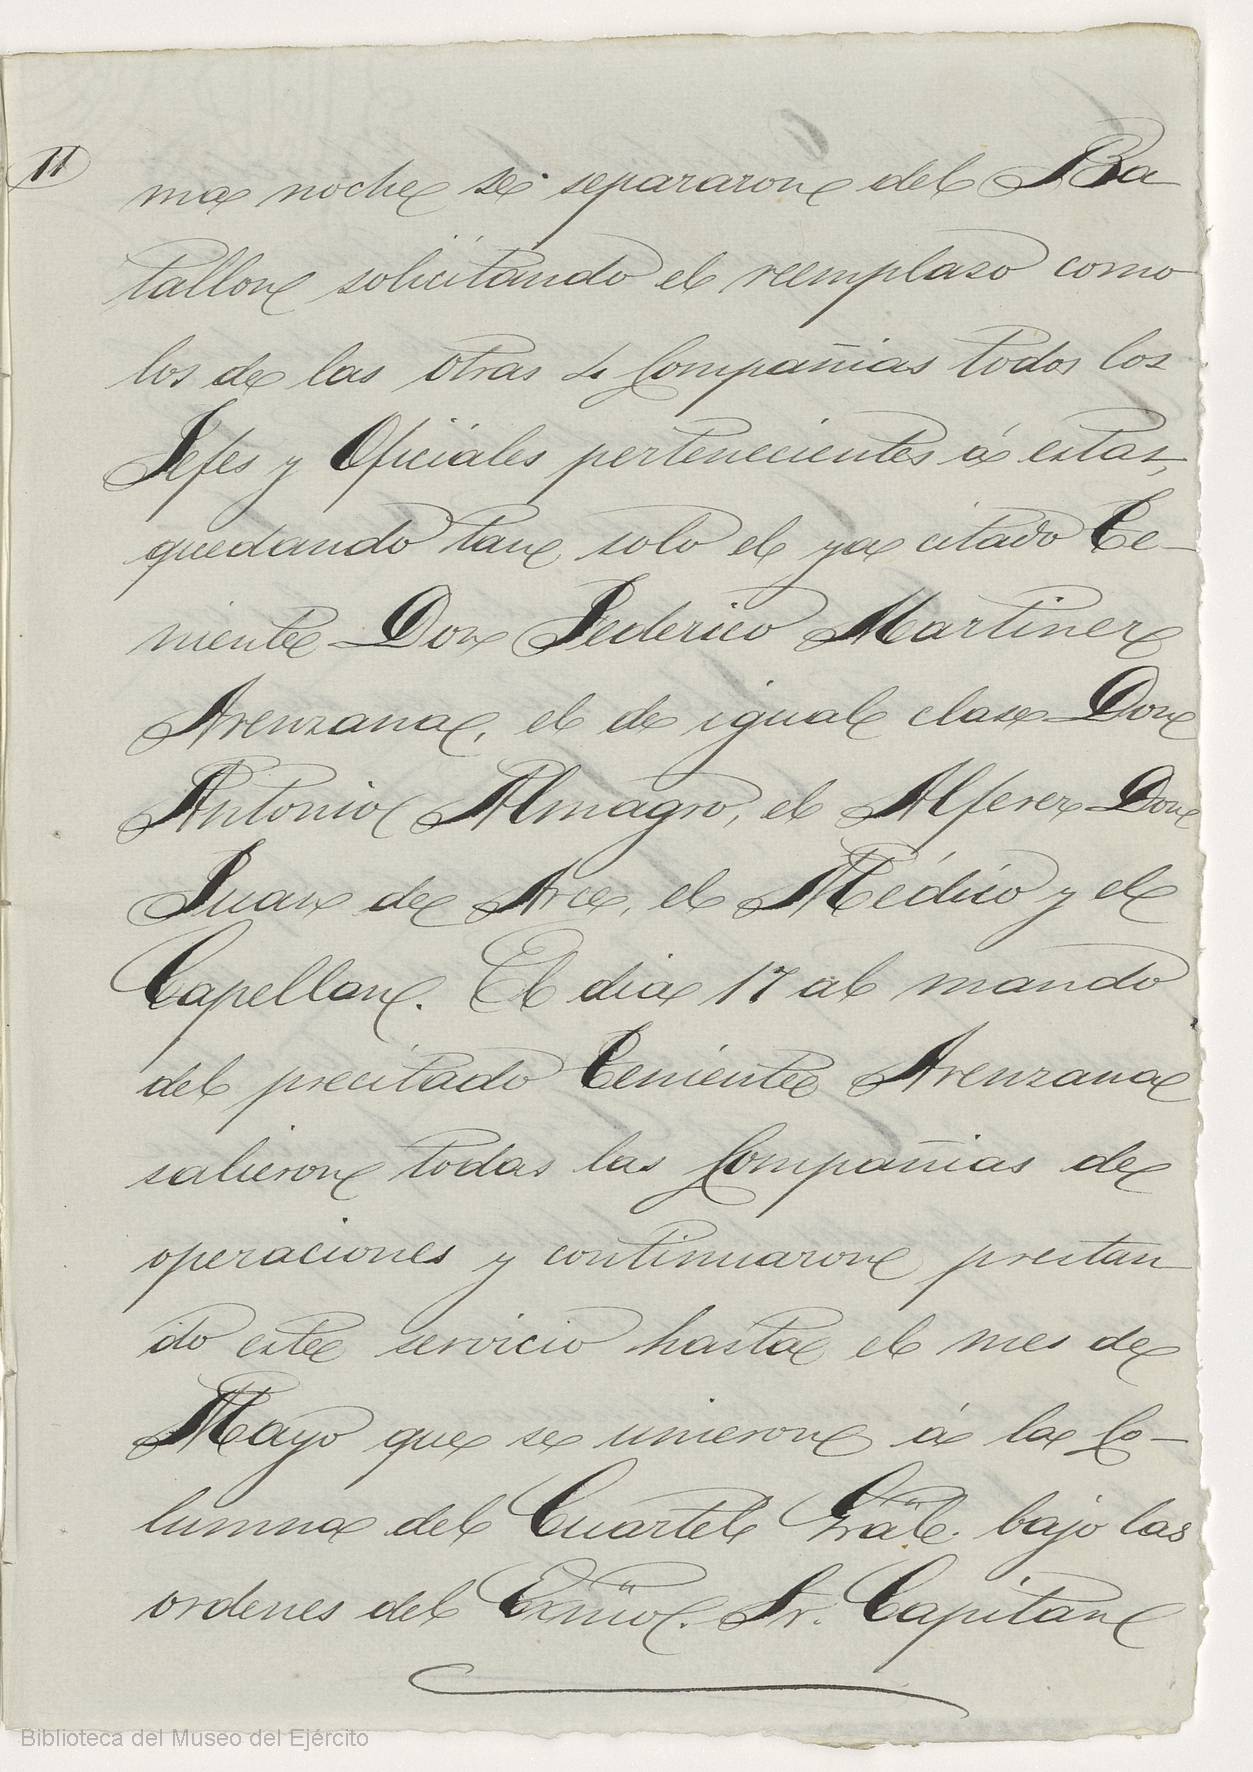 11
ma noche se separaron del Ba
tallon solicitando el reemplaso como
los de las otras 4 Compañias todos los
Jefes y Oficiales pertenecientes á estas,
quedando tan solo el ya citado Te-
niente Don Federico Martinez
Arenzana, el de igual clase Don
Antonio Almagro, el Alferez Don
Juan de Arce, el Médico y el
Capellan. El dia 17 al mando
del precitado Teniente Arenzana
salieron todas las Compañias de
operaciones y continuaron prestan
do este servicio hasta el mes de
Mayo que se unieron á la Co-
lumna del Cuartel Gral. bajo las
ordenes del Exmo. Sr. Capitan
Biblioteca del Museo del Ejército